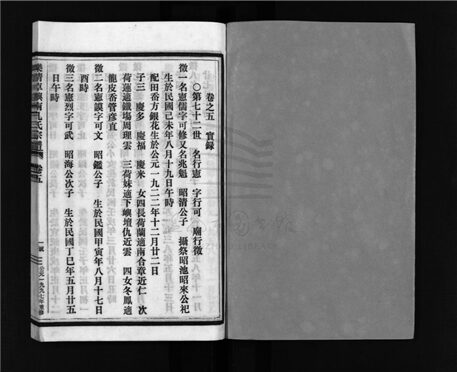 卷之五　實錄
○第七十二世　名行憲　字行可　廟行徵
徵一名憲儒字可修又名兆魁　昭清公子　攝祭昭池昭來公祀
生於民國己未年八月十九日午時
配田岙方銀花生於公元一九二二年十二月廿二日
子三　慶多　慶福　慶來　女四長荷蘭適南合章近仁　次
荷蓮適鐵場周理雲　三荷妹適下嶼壇仇近雲　四女冬鳳適
龍皮岙管彦直
徵二名憲鏌字可文　昭鏡公子　生於民國甲寅年八月十七日
酉時
徵三名憲烈字可武　昭海公次子　生於民國丁巳年五月廿五
日午時
孔氏宗譜　卷五